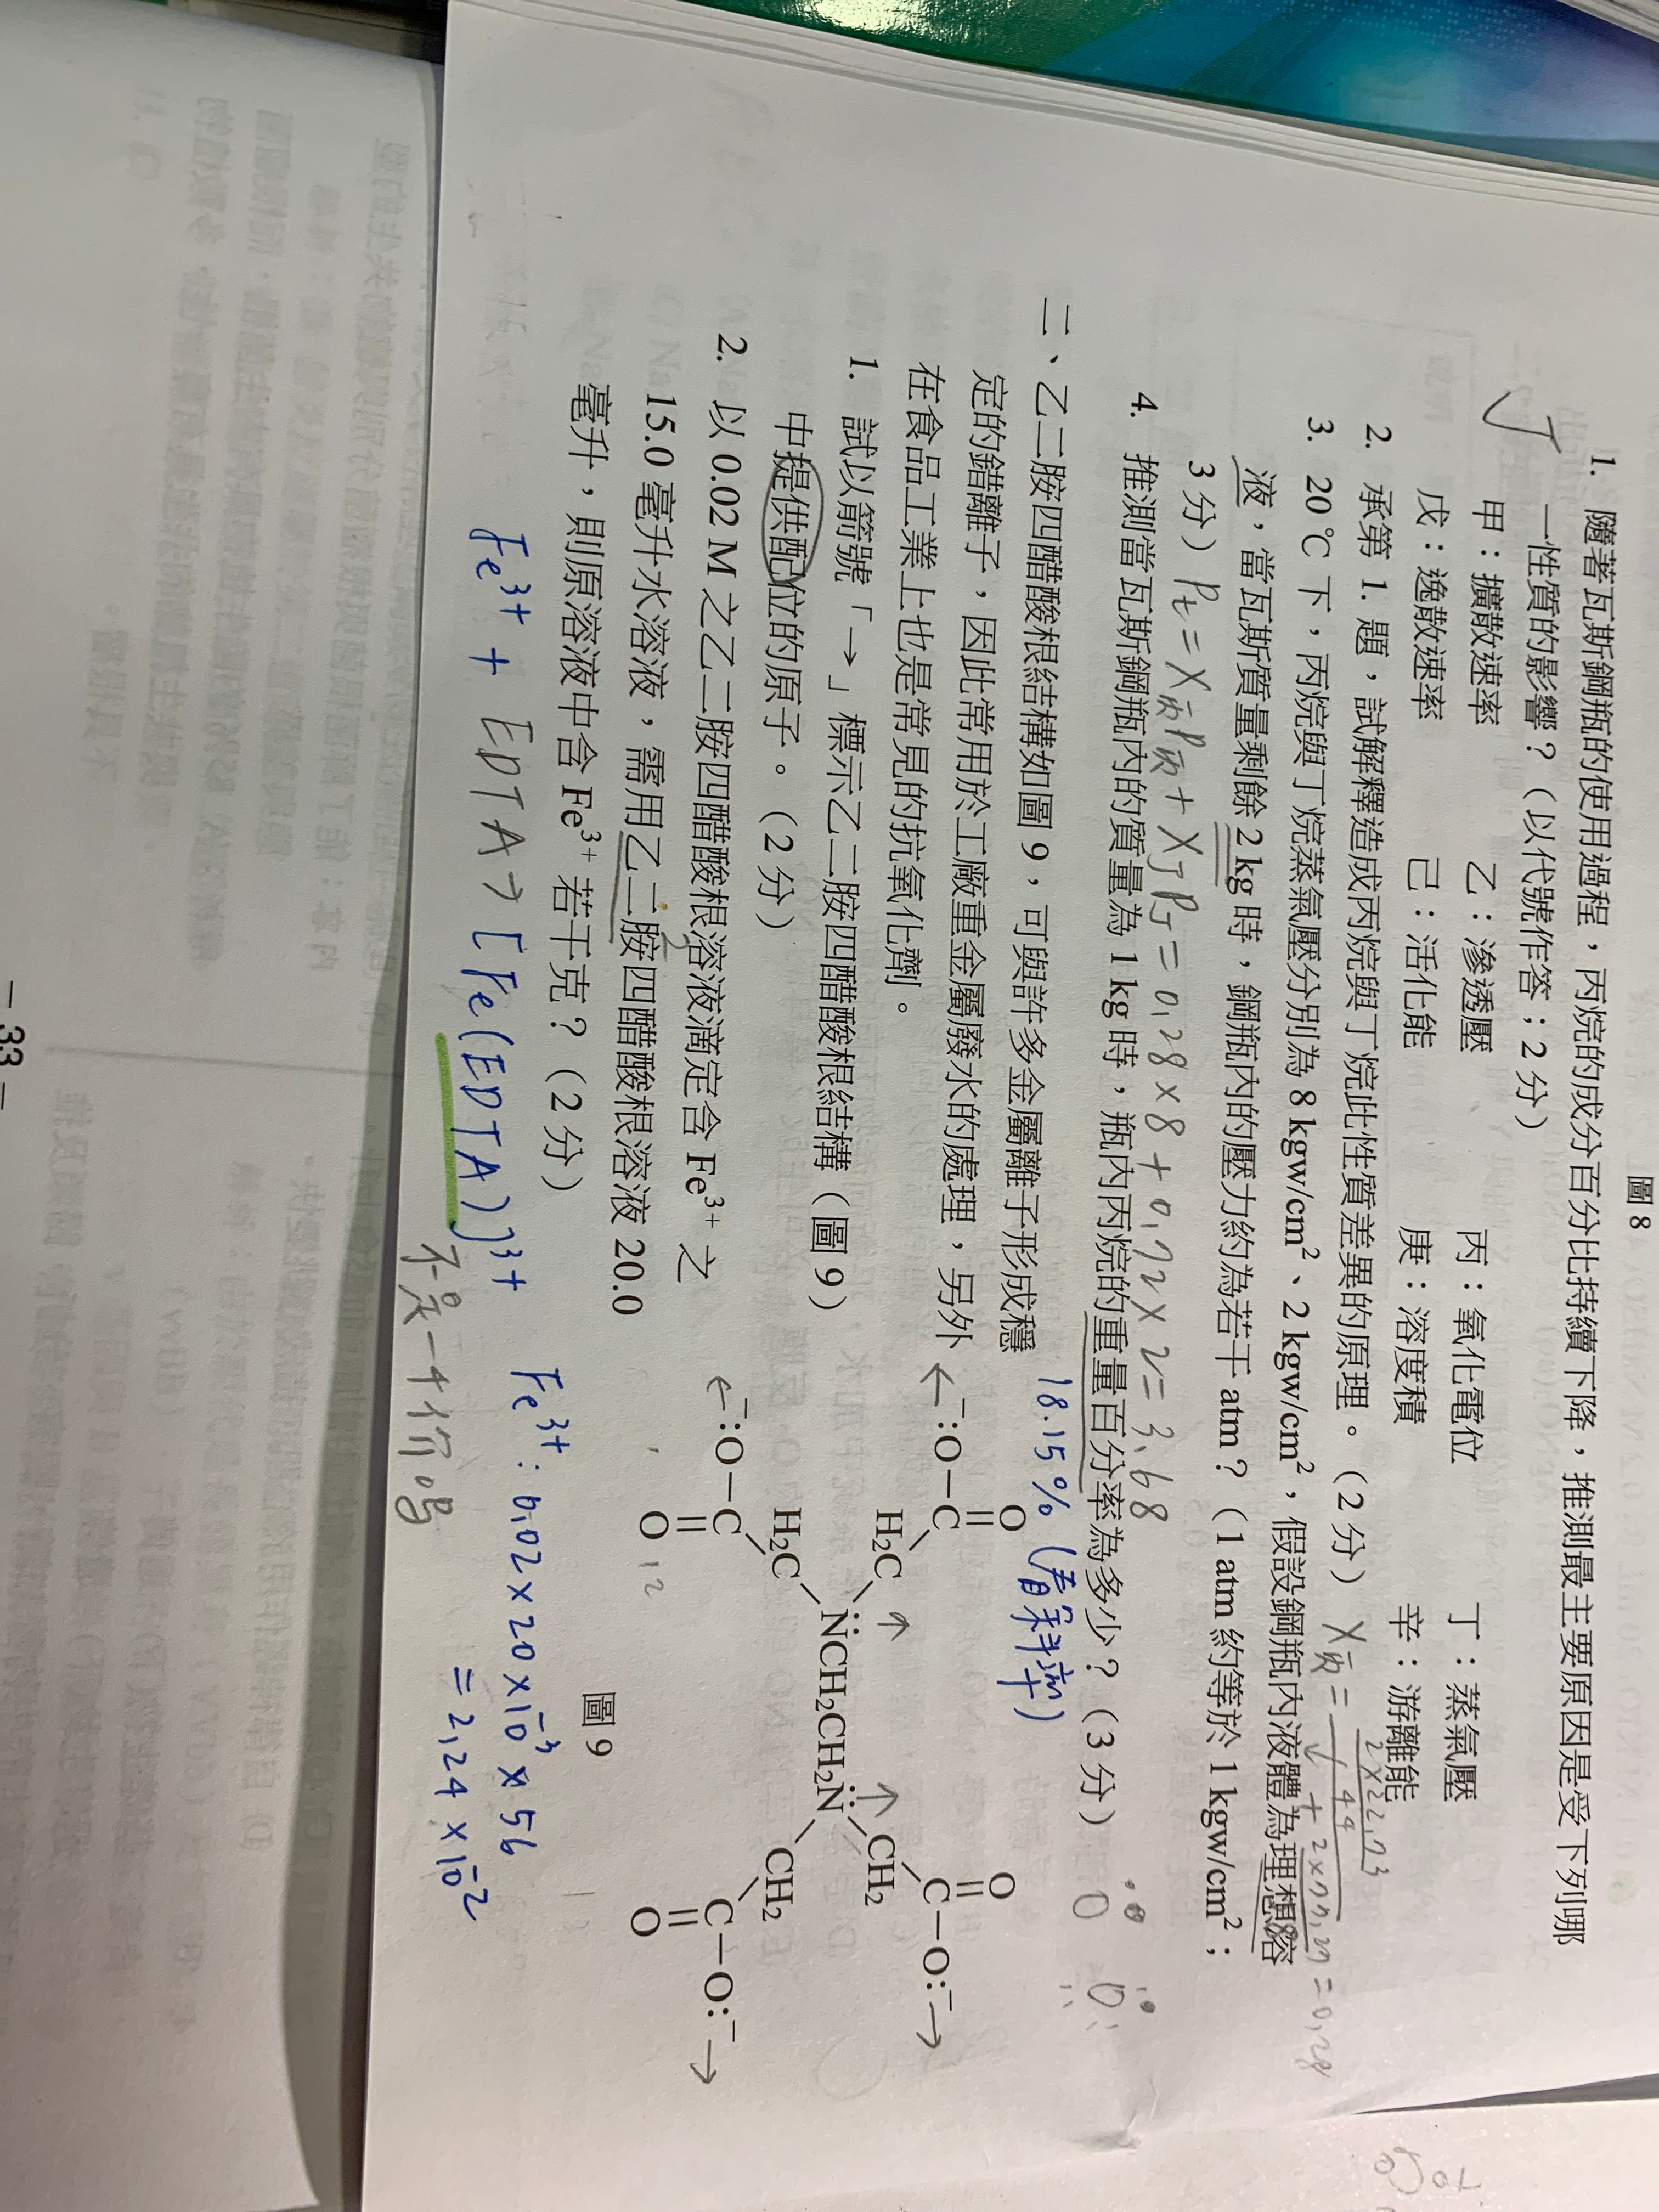 圖8
1. 隨著瓦斯鋼瓶的使用過程，丙烷的成分百分比持續下降，推測最主要原因是受下列哪
一性質的影響？（以代號作答；2 分）
甲：擴散速率 乙：滲透壓 丙：氧化電位 丁：蒸氣壓
戊：逸散速率 己：活化能 庚：溶度積 辛：游離能
2. 承第 1. 題，試解釋造成丙烷與丁烷此性質差異的原理。（2 分）
X丙 =
3. 20 ℃ 下，丙烷與丁烷蒸氣壓分別為 8 kgw/cm²、2 kgw/cm²，假設鋼瓶內液體為理想溶
液，當瓦斯質量剩餘 2 kg 時，鋼瓶內的壓力約為若干 atm？（1 atm 約等於 1 kgw/cm²；
3 分）
Pt = X丙P丙 + X丁P丁 = 0.28 × 8 + 0.72 × 2 = 3.68
4. 推測當瓦斯鋼瓶內的質量為 1 kg 時，瓶內丙烷的重量百分率為多少？（3 分）
18.15% (看解析)
二、乙二胺四醋酸根結構如圖 9，可與許多金屬離子形成穩
定的錯離子，因此常用於工廠重金屬廢水的處理，另外
在食品工業上也是常見的抗氧化劑。
1. 試以箭號「→」標示乙二胺四醋酸根結構（圖 9）
中提供配位的原子。（2 分）
2. 以 0.02 M 之乙二胺四醋酸根溶液滴定含 Fe³⁺ 之
15.0 毫升水溶液，需用乙二胺四醋酸根溶液 20.0
毫升，則原溶液中含 Fe³⁺ 若干克？（2 分）
O O
←⁻:O—C C—O:⁻→
H₂C CH₂
N̈CH₂CH₂N̈
H₂C CH₂
←⁻:O—C C—O:⁻→
O O
圖 9
Fe³⁺ + EDTA → [Fe(EDTA)]³⁺
不是-4價嗎
Fe³⁺ : 0.02 × 20 × 10⁻³ × 56
= 2.24 × 10⁻²
– 33 –